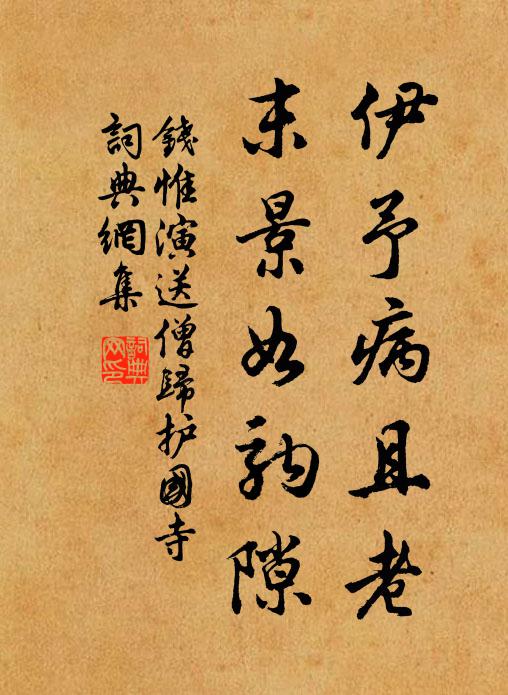 伊予病且老
末景如駒隙
錢惟演送僧歸护國寺
詞典網集
詞典網印